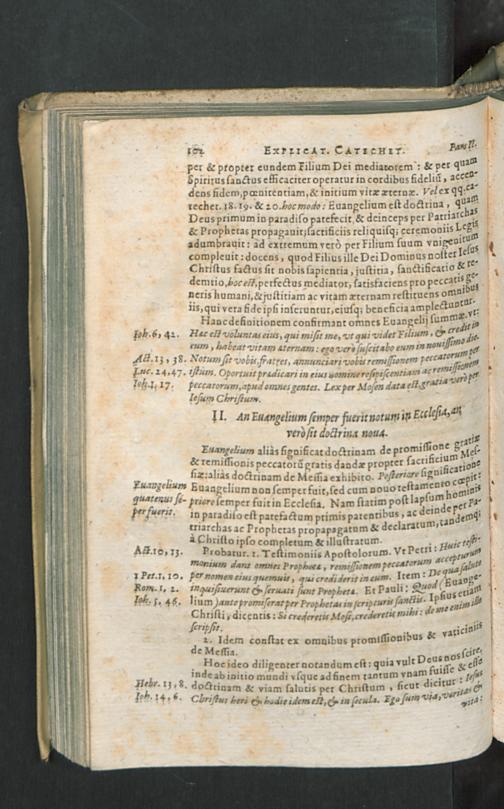 102 EXPLICAT. CATECHET. Pars II.
per & propter eundem Filium Dei mediatorem: & per quam
Spiritus sanctus efficaciter operatur in cordibus fideliũ, accen-
dens fidem, pœnitentiam, & initium vitæ æternæ. Vel ex qq. ca-
techet. 18. 19. & 20. hoc modo: Euangelium est doctrina, quam
Deus primum in paradiso patefecit, & deinceps per Patriarchas
& Prophetas propagauit, sacrificiis reliquisq; ceremoniis Legis
adumbrauit: ad extremum verò per Filium suum vnigenitum
compleuit: docens, quod Filius ille Dei Dominus noster Iesus
Christus factus sit nobis sapientia, iustitia, sanctificatio & re-
demtio, hoc est, perfectus mediator, satisfaciens pro peccatis ge-
neris humani, & iustitiam ac vitam æternam restituens omnibus
iis, qui vera fide ipsi inseruntur, eiusq; beneficia amplectuntur.
Hanc definitionem confirmant omnes Euangelij summæ, vt:
Ioh. 6, 42. Hæc est voluntas eius, qui misit me, vt qui videt Filium, & credit in
eum, habeat vitam æternam: ego verò suscitabo eum in nouissimo die.
Act. 13, 38. Notum sit vobis, fratres, annunciari vobis remissionem peccatorum per
Luc. 24, 47. istum. Oportuit prædicari in eius nomine resipiscentiam ac remissionem
Ioh. 1, 17. peccatorum, apud omnes gentes. Lex per Mosen data est, gratia verò per
Iesum Christum.
II. An Euangelium semper fuerit notum in Ecclesia, an
verò sit doctrina noua.
Euangelium aliàs significat doctrinam de promissione gratiæ
& remissionis peccatorũ gratis dandæ propter sacrificium Mes-
siæ: aliàs doctrinam de Messia exhibito. Posteriore significatione
Euangelium Euangelium non semper fuit, sed cum nouo testamento cœpit:
quatenus se- priore semper fuit in Ecclesia. Nam statim post lapsum hominis
per fuerit. in paradiso est patefactum primis parentibus, ac deinde per Pa-
triarchas ac Prophetas propagatum & declaratum, tandemq;
à Christo ipso completum & illustratum.
Act. 10, 13. Probatur. 1. Testimoniis Apostolorum. Vt Petri: Huic testi-
monium dant omnes Prophetæ, remissionem peccatorum accepturum
per nomen eius quemuis, qui crediderit in eum. Item: De qua salute
1 Pet. 1, 10. inquisiuerunt & scrutati sunt Prophetæ. Et Pauli: Quod (Euange-
Rom. 1, 2. lium) ante promiserat per Prophetas in scripturis sanctis. Ipsius etiam
Ioh. 5, 46. Christi, dicentis: Si crederetis Mosi, crederetis mihi: de me enim ille
scripsit.
2. Idem constat ex omnibus promissionibus & vaticiniis
de Messia.
Hoc ideo diligenter notandum est: quia vult Deus nos scire,
inde ab initio mundi vsque ad finem tantum vnam fuisse & esse
Hebr. 13, 8. doctrinam & viam salutis per Christum, sicut dicitur: Iesus
Ioh. 14, 6. Christus heri & hodie idem est, & in secula. Ego sum via, veritas &
vita: